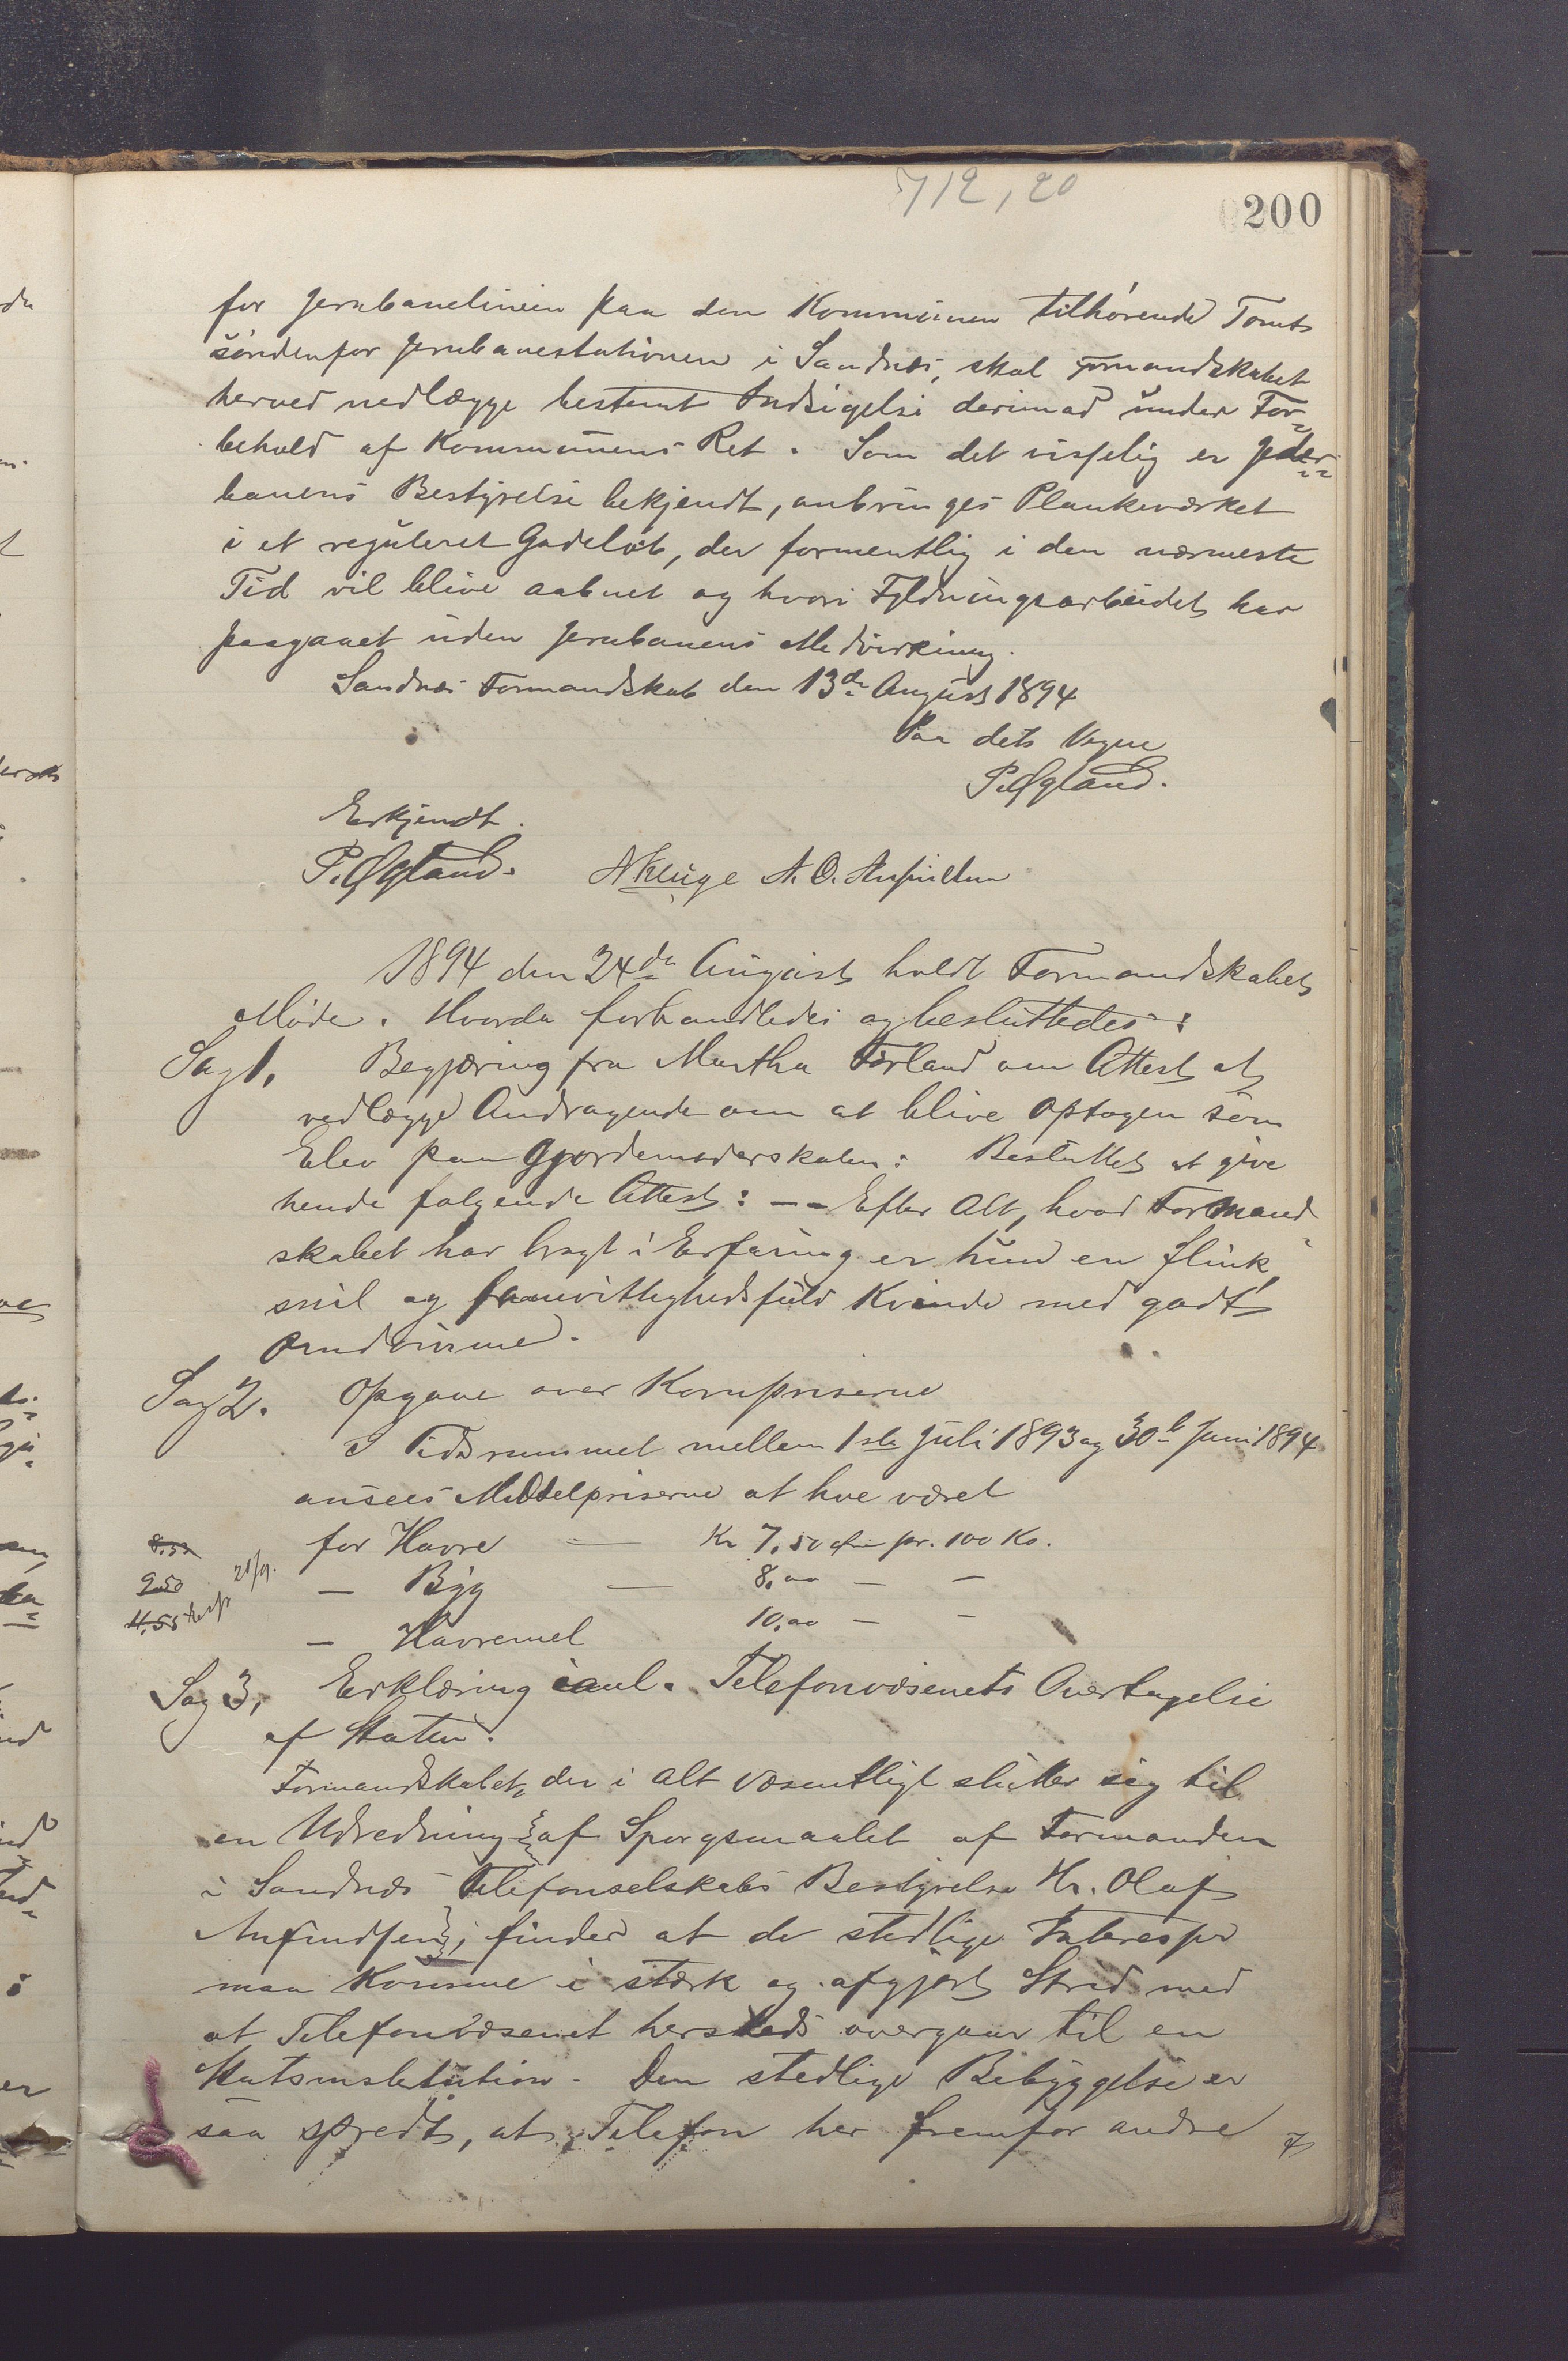 712,20
200
for Jernbanelinien paa den Kommunen tilhørende Tomt
søndenfor Jernbanestationen i Sandnæs, skal Formandskabet
herved nedlægge bestemt Indsigelse derimod under For-
behold af Kommunens Ret. Som det visselig er Jeder-
banens Bestyrelse bekjendt, anbringes Plankeværket
i et reguleret Gadeløb, der formentlig i den nærmeste
Tid vil blive aabnet og hvori Fyldningsarbeidet har
paagaaet uden Jernbanens Medvirkning.
Sandnæs Formandskab den 13de August 1894
Paa dets Vegne
P. Øgland.
Erkjendt.
P. Øgland. A Kluge A. O. Anfindsen
1894 den 24de August holdt Formandskabet
Møde. Hvorda forhandledes og besluttedes:
Sag 1. Begjæring fra Martha Førland om Attest at
vedlægge Andragende om at blive optagen som
Elev paa Gjordemoderskolen: Besluttet at give
hende følgende Attest: -- Efter Alt, hvad Formand-
skabet har bragt i Erfaring er hun en flink,
snil og samvittighedsfuld Kvinde med godt
Omdømme.
Sag 2. Opgave over Kornpriserne
I Tidsrummet mellem 1ste Juli 1893 og 30te Juni 1894
ansees Middelpriserne at have været
8.50 for Havre — Kr 7,50 pr. 100 Ko.
9.50 21/9. — Byg — 8,00 — —
11.55 — Havremel 10,00 — —
Sag 3, Erklæring i anl. Telefonvæsenets Overtagelse
af Staten.
Formandskabet, der i alt væsentligt slutter sig til
en Udredning af Spørgsmaalet af Formanden
i Sandnæs Telefonselskabs Bestyrelse Hr. Olaf
Anfindsen, finder at de stedlige Interesser
maa komme i stærk og afgjort Strid med
at Telefonvæsenet hersteds overgaar til en
Statsinstitution. Den stedlige Bebyggelse er
saa spredt, at Telefon her fremfor andre